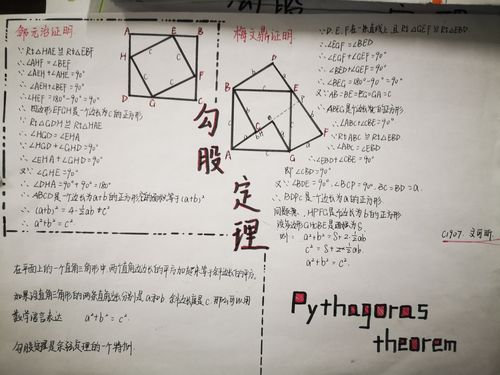 邹元治证明
∵ Rt△HAE ≌ Rt△EBF
∴ ∠AHF = ∠BEF
∵ ∠AEH + ∠AHE = 90°
∴ ∠AEH + ∠BEF = 90°
∴ ∠HEF = 180° - 90° = 90°
∴ 四边形EFGH是一个边长为c的正方形
∵ Rt△GDH ≌ Rt△HAE
∴ ∠HGD = ∠EHA
∵ ∠HGD + ∠GHD = 90°
∴ ∠EHA + ∠GHD = 90°
又∵ ∠GHE = 90°
∴ ∠DHA = 90° + 90° = 180°
∴ ABCD是一个边长为a+b的正方形 它的面积等于 (a+b)²
∴ (a+b)² = 4·½ab + c²
∴ a² + b² = c²
A E B
H
F
D G C
勾股定理
梅文鼎证明
D
B E
C
F
A G
∵ D、E、F在一条直线上, 且 Rt△GEF ≌ Rt△EBD
∴ ∠EGF = ∠BED
∵ ∠EGF + ∠GEF = 90°
∴ ∠BED + ∠GEF = 90°
∴ ∠BEG = 180° - 90° = 90°
又∵ AB = BE = EG = GA = C
∴ ABEG是个边长为c的正方形
∴ ∠ABC + ∠CBE = 90°
∵ Rt△ABC ≌ Rt△EBD
∴ ∠ABC = ∠EBD
∴ ∠EBD + ∠CBE = 90°
即 ∠CBD = 90°
又∵ ∠BDE = 90°, ∠BCP = 90°, BC = BD = a
∴ BDPC是个边长为a的正方形
同理, HPFG是个边长为b的正方形
设多边形GHCBE 面积为S
则: a² + b² = S + 2·½ab
c² = S + 2×½ab
a² + b² = c²
C1907
在平面上的一个直角三角形中, 两个直角边边长的平方加起来等于斜边长的平方.
如果设直角三角形的两条直角边长分别是a和b, 斜边长度是c, 那么可以用
数学语言表达 a² + b² = c².
勾股定理是余弦定理的一个特例.
Pythagoras
theorem